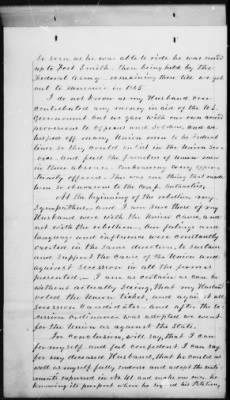 so soon as he was able to ride he was moved
up to Fort Smith, then being held by the
Federal Army - remaining there till we got
out to in 1865
I do not know as my Husband ever
contributed any money in aid of the U.S.
Government but we gave with our own
provisions to officers and soldiers, and we
helped off many Union men to the Federal
lines so they could enlist in the Union ser-
vice. And feed the families of Union men
in their absence. Embracing every oppor-
tunity offered. This was one thing that made
him so obnoxious to the Conf. Authorities.
At the beginning of the rebellion my
sympathies and I am sure those of my
Husband were with the Union Cause, and
not with the rebellion. Our feelings and
language and influence were constantly
exerted in the same direction, to sustain
and support the Cause of the Union and
against Secession in all the forms
presented. I am as certain as can be
without actually seeing, that my Husband
voted the Union ticket, and again st all
Secession Candidates. And after the Se-
cession ordinance was adopted we went
for the Union as against the State.
In conclusion, will say, that I can
for myself and feel confident I can say
for my deceased Husband, that he could as
well as myself fully endorse and adopt the senti-
ments expressed in
knowing its purport when he signed his Petition,